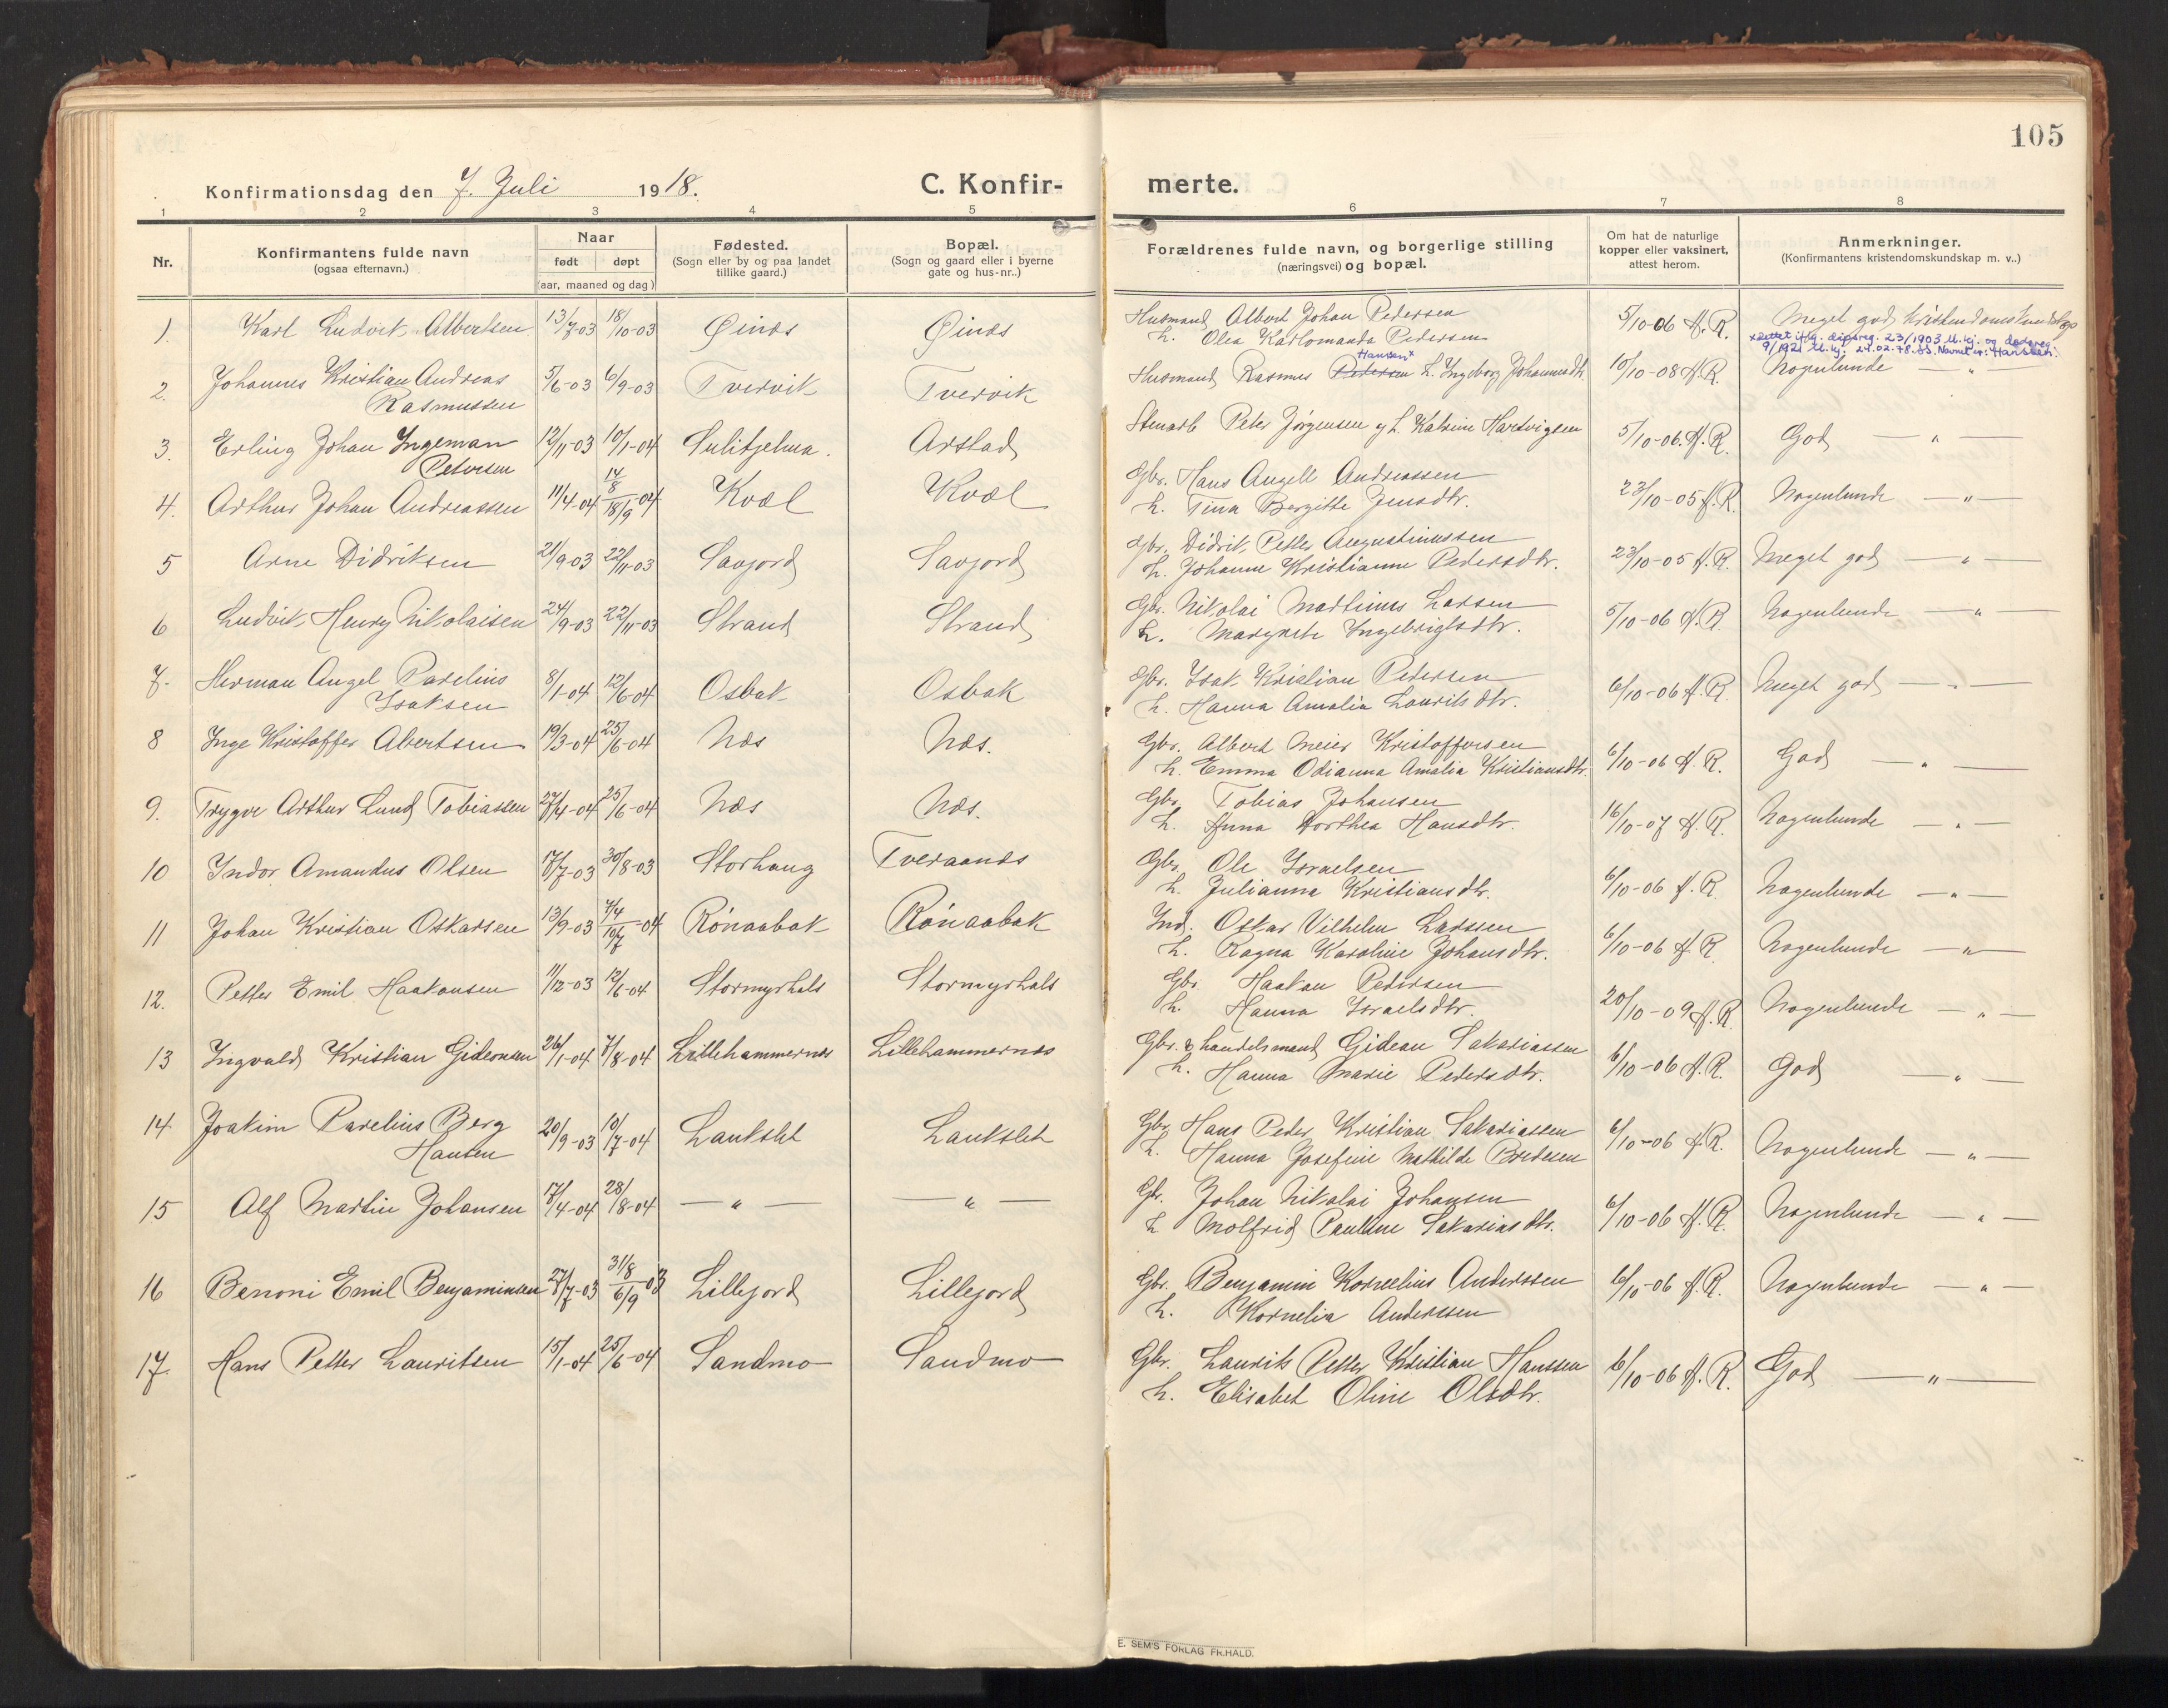 105
Konfirmationsdag den 7. Juli 1918. C. Konfir- merte.
1 2 3 4 5 6 7 8
Nr.
Konfirmantens fulde navn
(ogsaa efternavn.)
Naar
født døpt
(aar, maaned og dag)
Fødested.
(Sogn eller by og paa landet
tillike gaard.)
Bopæl.
(Sogn og gaard eller i byerne
gate og hus-nr..)
Forældrenes fulde navn, og borgerlige stilling
(næringsvei) og bopæl.
Om hat de naturlige
kopper eller vaksinert,
attest herom.
Anmerkninger.
(Konfirmantens kristendomskundskap m. v..)
1. Karl Ludvik Albertsen 13/7-03 18/10-03 Øinæs Øinæs Husmand Albert Johan Pedersen 5/10-06 A.R. Meget god kristendomskundskap
h. Olea Karlomanda Pedersen
x Rettet iflg. dåpsreg. 23/1903 M.kj. og dødsreg.
9/1921 M.kj. 24.02.78. Navnet er: Hansen.
Hansen x
2. Johannes Kristian Andreas 5/6-03 6/9-03 Tvervik Tvervik Husmand Rasmus Pedersen h. Ingeborg Johannesdtr. 10/10-08 A.R. Nogenlunde — " —
Rasmussen
3. Erling Johan Ingeman 12/11-03 10/1-04 Sulitjelma. Arstad Stenarb Peter Jørgensen og h. Katrine Hartvigsen 5/10-06. A.R. God — " —
Petersen
4. Arthur Johan Andreassen 11/4-04 14/8 18/9 04 Kvæl Kvæl Gbr. Hans Angell Andreassen 23/10-05 A.R. Nogenlunde — " —
h. Tina Bergitte Jensdtr.
5 Arne Didriksen 21/9-03 22/11-03 Savjord Savjord Gbr. Didrik Petter Augustinussen 23/10-05 A.R. Meget god — " —
h. Johanne Kristianne Pedersdtr.
6 Ludvik Henry Nikolaisen 24/9-03 22/11-03 Strand Strand Gbr. Nikolai Martinus Larsen 5/10-06 A.R. Nogenlunde — " —
h. Margrete Ingebrigtsdtr.
7. Herman Angel Parelius 8/1-04 12/6-04 Osbak Osbak Gbr. Isak Kristian Petersen 6/10-06 A.R. Meget god — " —
Isaksen h. Hanna Amalia Lauritsdtr.
8 Inge Kristoffer Abertsen 19/3-04 25/6-04 Næs Næs. Gbr. Albert Meier Kristoffersen 6/10-06 A.R. God — " —
h. Emma Odianna Amalia Kristiansdtr.
9. Trygve Arthur Lund Tobiassen 27/4-04 25/6-04 Næs Næs. Gbr. Tobias Johansen 16/10-07 A.R. Nogenlunde — " —
h. Anna Dorthea Hansdtr.
10 Indor Amandus Olsen 17/7-03 30/8-03 Storhaug Tveraanes Gbr. Ole Israelsen 6/10-06 A.R. Nogenlunde — " —
h. Julianna Kristiansdtr.
11 Johan Kristian Oskarsen 13/9-03 7/4 10/7 -04 Rønaabak Rønaabak Ind. Oskar Vilhelm Larssen 6/10-06 A.R. Nogenlunde — " —
h. Ragna Karoline Johansdtr.
12. Petter Emil Haakonsen 11/12-03 12/6-04 Stormyrhals Stormyrhals Gbr. Haakon Pedersen 20/10-09 A.R. Nogenlunde — " —
h. Hanna Israelsdtr.
13 Ingvald Kristian Gideonsen 26/1-04 7/8-04 Lillehammernæs Lillehammernæs Gbr. & handelsmand Gideon Sakariassen 6/10-06 A.R. God — " —
h. Hanna Marie Pedersdtr.
14. Joakim Parelius Berg 20/9-03 10/7-04 Laukslet Laukslet Gbr. Hans Peder Kristian Sakariassen 6/10-06 A.R. Nogenlunde — " —
Hansen h. Hanna Josefine Mathilde Bredesen
15 Alf Martin Johansen 17/4-04 28/8-04 — " — — " — Gbr. Johan Nikolai Johansen 6/10-06 A.R. Nogenlunde — " —
h. Molfrid Pauline Sakariasdtr.
16 Benoni Emil Benjaminsen 27/7-03 31/8 6/9 03 Lillejord Lillejord Gbr. Benjamin Kornelius Anderssen 6/10-06 A.R. Nogenlunde — " —
h. Kornelia Anderssen
17. Hans Petter Lauritsen 15/1-04 25/6-04 Sandmo Sandmo Gbr. Laurits Petter Kristian Hanssen 6/10-06 A.R. God — " —
h. Elisabet Oline Olsdtr.
E. SEM'S FORLAG FR.HALD.